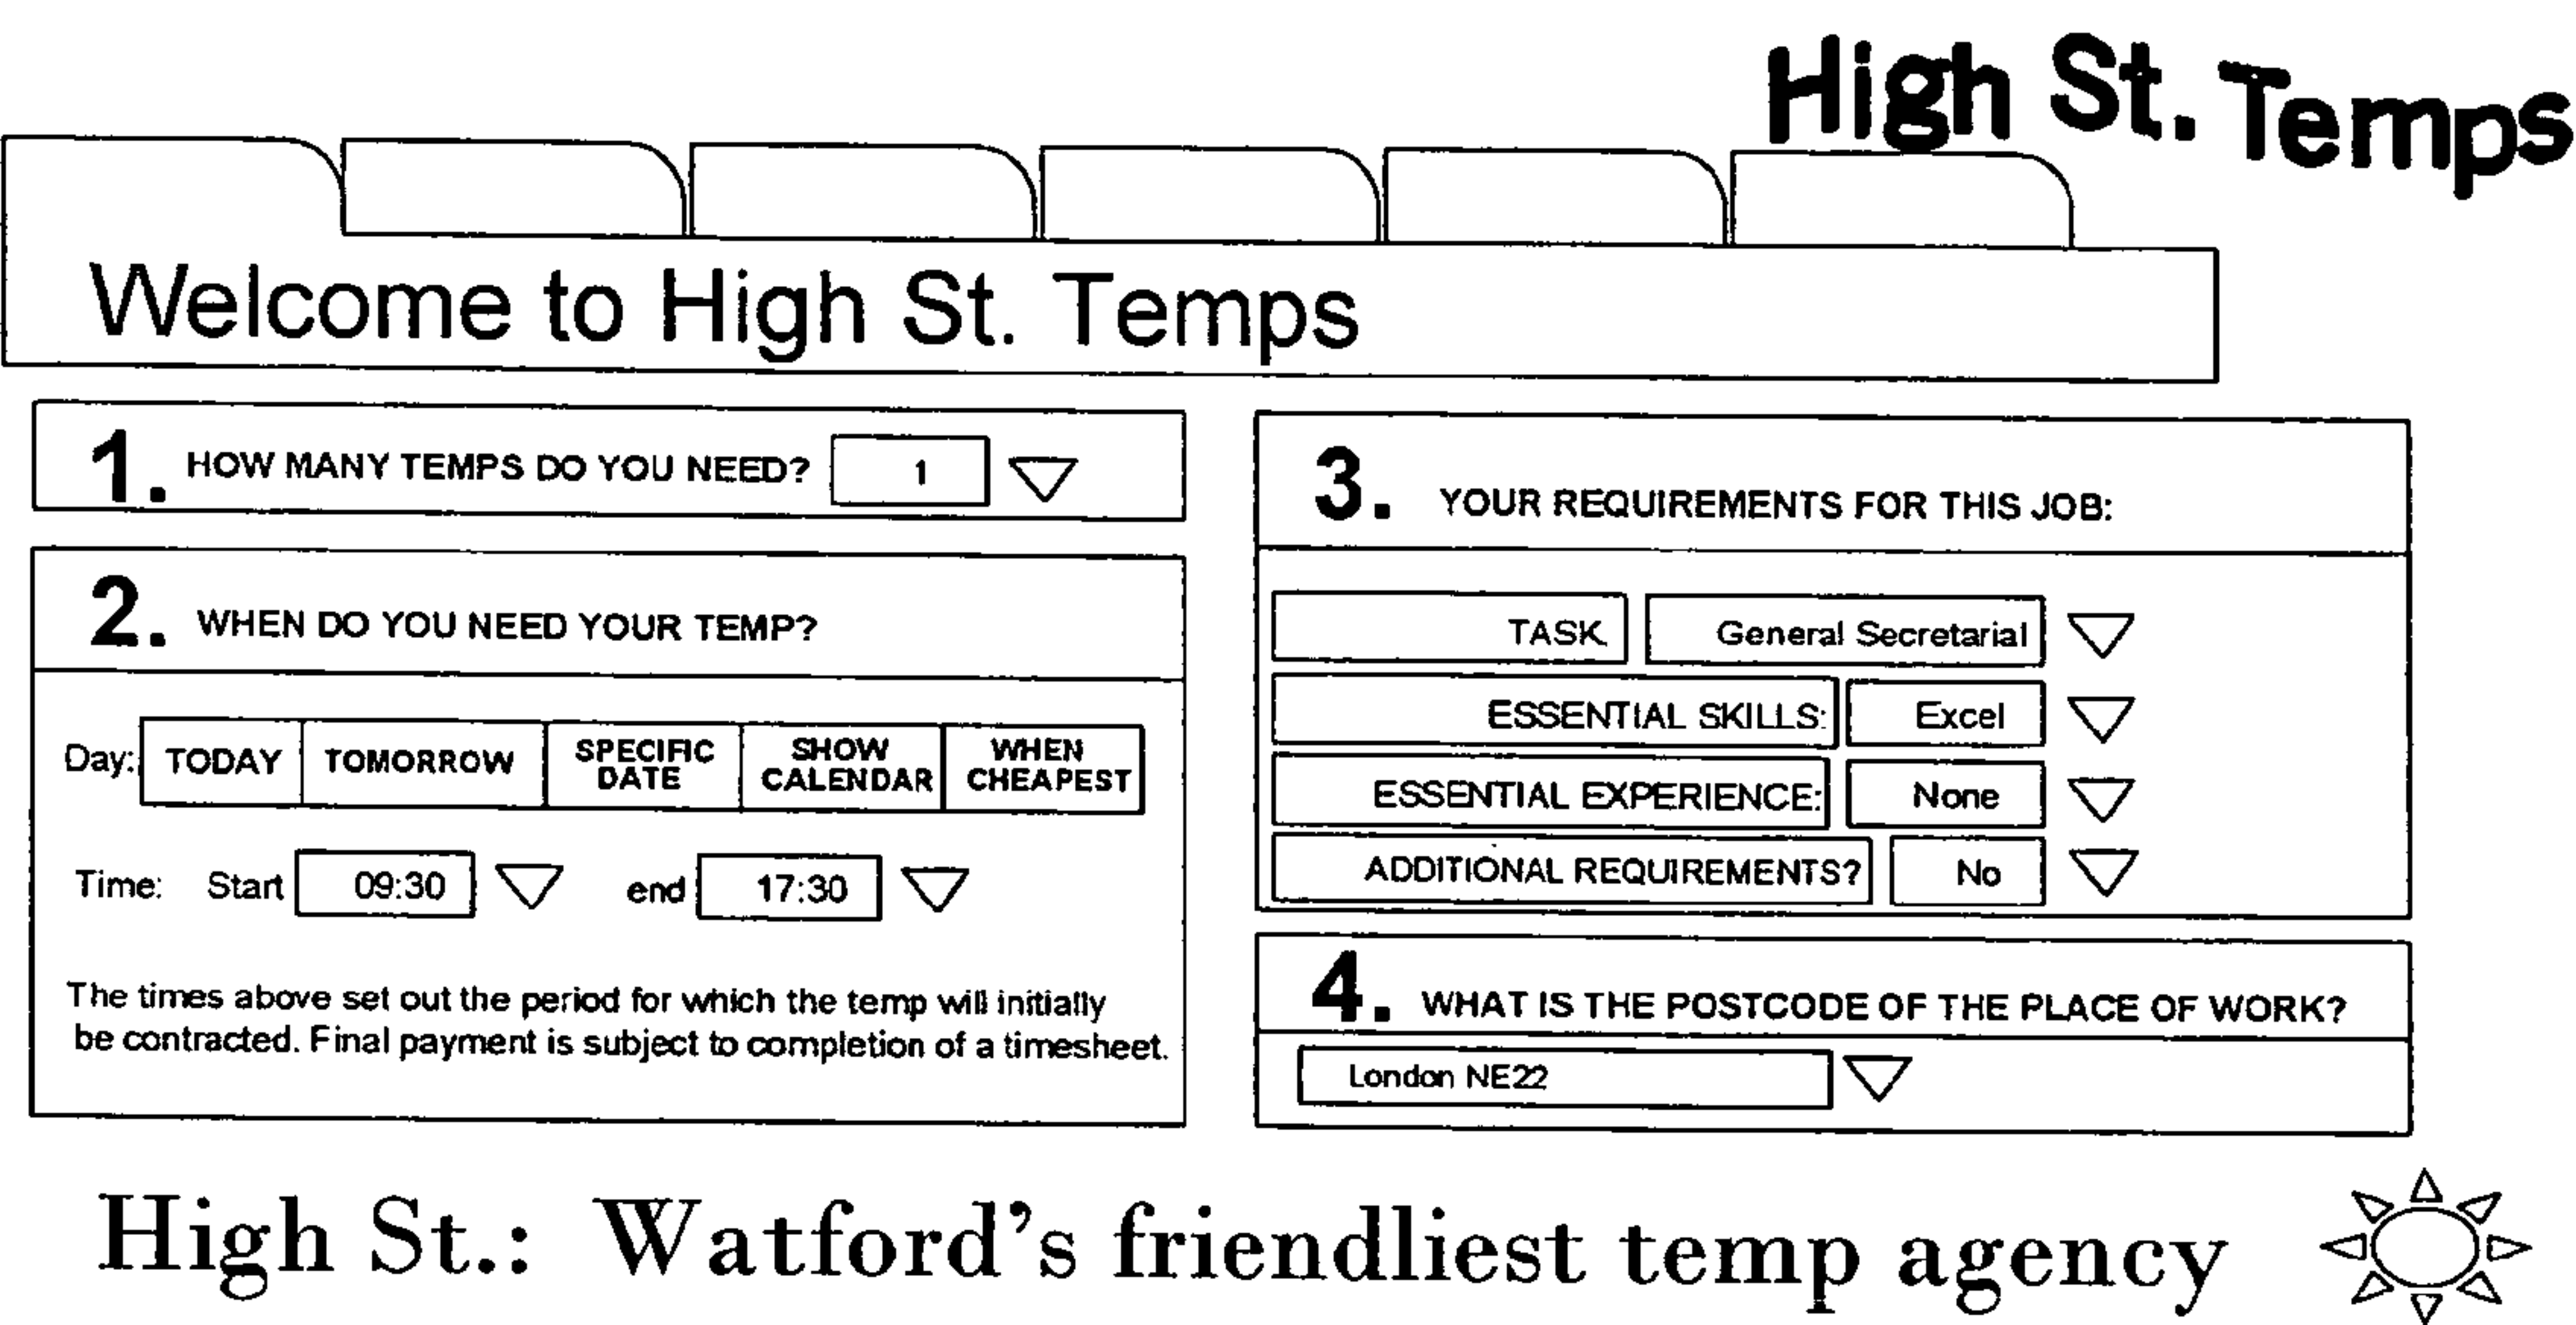 High St. Temps
Welcome to High St. Temps
1. HOW MANY TEMPS DO YOU NEED? 1
2. WHEN DO YOU NEED YOUR TEMP?
Day: TODAY TOMORROW SPECIFIC DATE SHOW CALENDAR WHEN CHEAPEST
Time: Start 09:30 end 17:30
The times above set out the period for which the temp will initially
be contracted. Final payment is subject to completion of a timesheet.
3. YOUR REQUIREMENTS FOR THIS JOB:
TASK General Secretarial
ESSENTIAL SKILLS: Excel
ESSENTIAL EXPERIENCE: None
ADDITIONAL REQUIREMENTS? No
4. WHAT IS THE POSTCODE OF THE PLACE OF WORK?
London NE22
High St.: Watford's friendliest temp agency